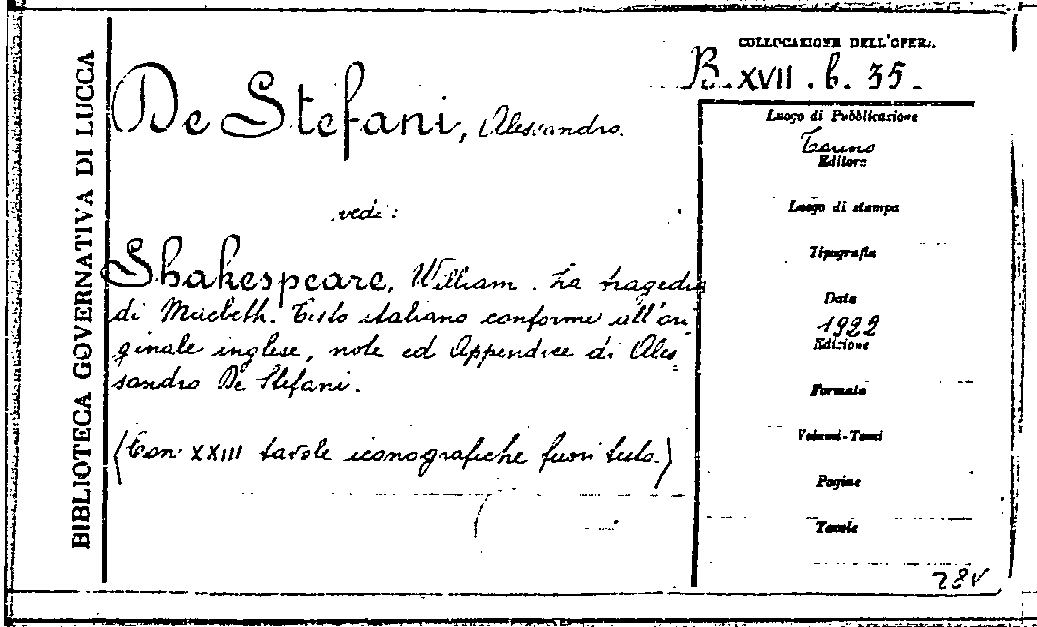 BIBLIOTECA GOVERNATIVA DI LUCCA
De Stefani, Alessandro.
vedi:
Shakespeare, William. La tragedia
di Macbeth. Testo italiano conforme all'ori
ginale inglese, note ed Appendice di Ales=
sandro De Stefani.
(Con XXIII tavole iconografiche fuori testo.)
COLLOCAZIONE DELL'OPERA
B. XVII. b. 35.
Luogo di Pubblicazione
Torino
Editore
Luogo di stampa
Tipografia
Data
1922
Edizione
Formato
Volumi-Tomi
Pagine
Tavole